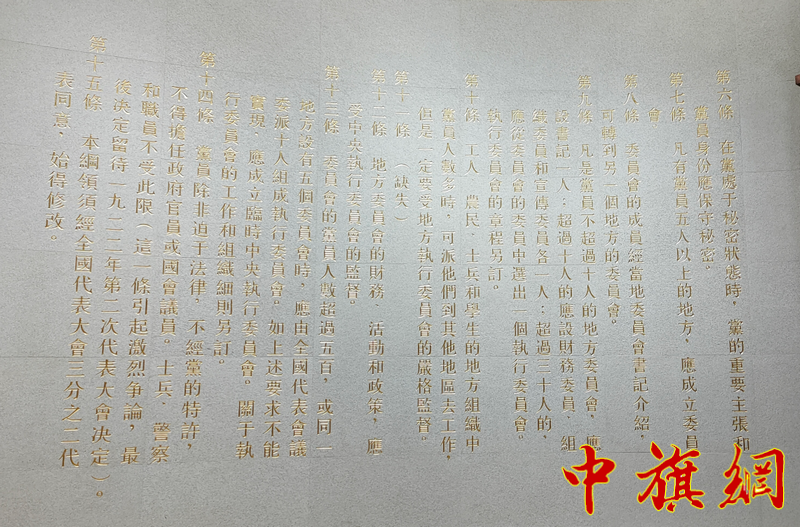 第六條 在黨處于秘密狀態時，黨的重要主張和
黨員身份應保守秘密。
第七條 凡有黨員五人以上的地方，應成立委員
會
第八條 委員會的成員經當地委員會書記介紹，
可轉到另一個地方的委員會。
第九條 凡是黨員不超過十人的地方委員會，應
設書記一人；超過十人的應設財務委員、組
織委員和宣傳委員各一人；超過三十人的，
應從委員會的委員中選出一個執行委員會。
執行委員會的章程另訂。
第十條 工人、農民、士兵和學生的地方組織中
黨員人數多時，可派他們到其他地區去工作，
但是一定要受地方執行委員會的嚴格監督。
第十一條 （缺失）
第十二條 地方委員會的財務、活動和政策，應
受中央執行委員會的監督。
第十三條 委員會的黨員人數超過五百，或同一
地方設有五個委員會時，應由全國代表會議
委派十人組成執行委員會。如上述要求不能
實現，應成立臨時中央執行委員會。關于執
行委員會的工作和組織細則另訂。
第十四條 黨員除非迫于法律，不經黨的特許，
不得擔任政府官員或國會議員。士兵、警察
和職員不受此限（這一條引起激烈爭論，最
後決定留待一九二二年第二次代表大會決定）。
第十五條 本綱領須經全國代表大會三分之二代
表同意，始得修改。
中旗網